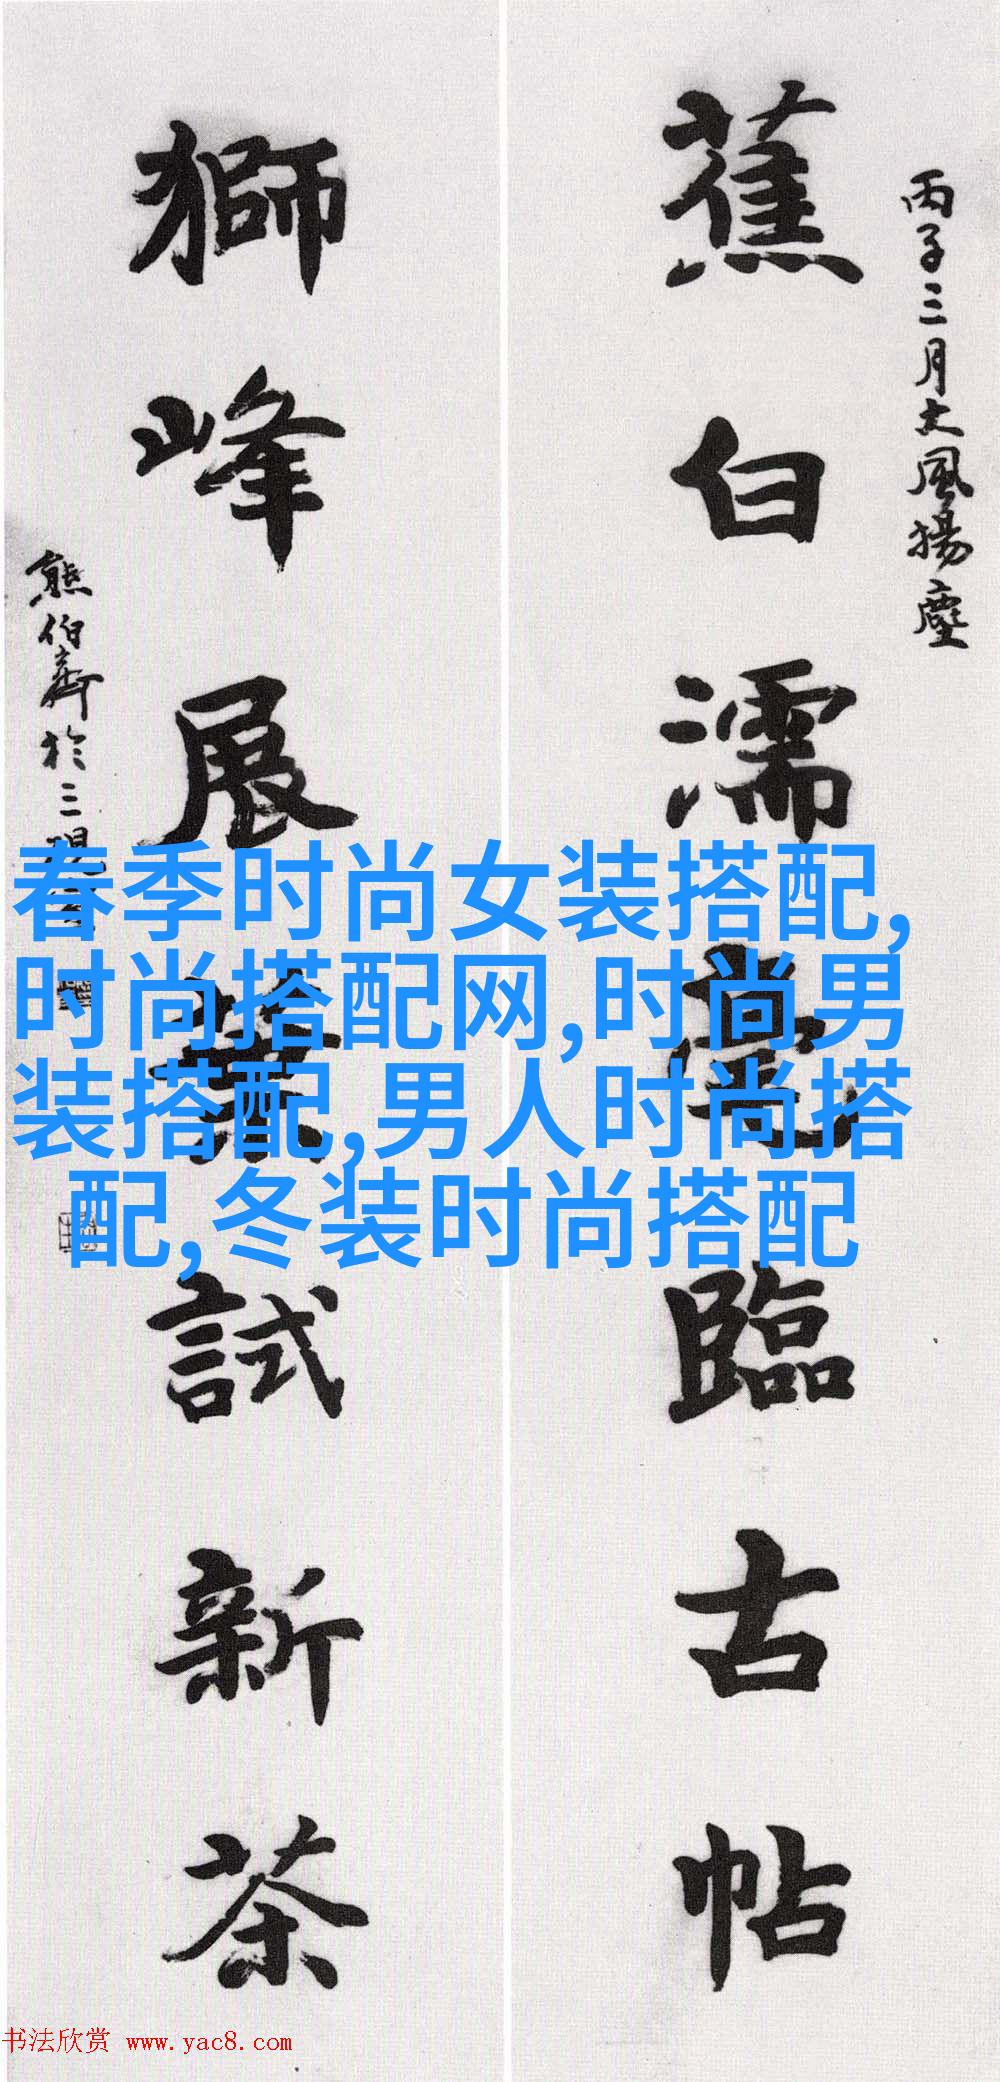 丙子三月大風揚塵
蕉白濡毫臨古帖
獅峰展葉試新茶
熊伯齊於三硯
春季时尚女装搭配,
时尚搭配网,时尚男
装搭配,男人时尚搭
配,冬装时尚搭配
书法欣赏 www.yac8.com